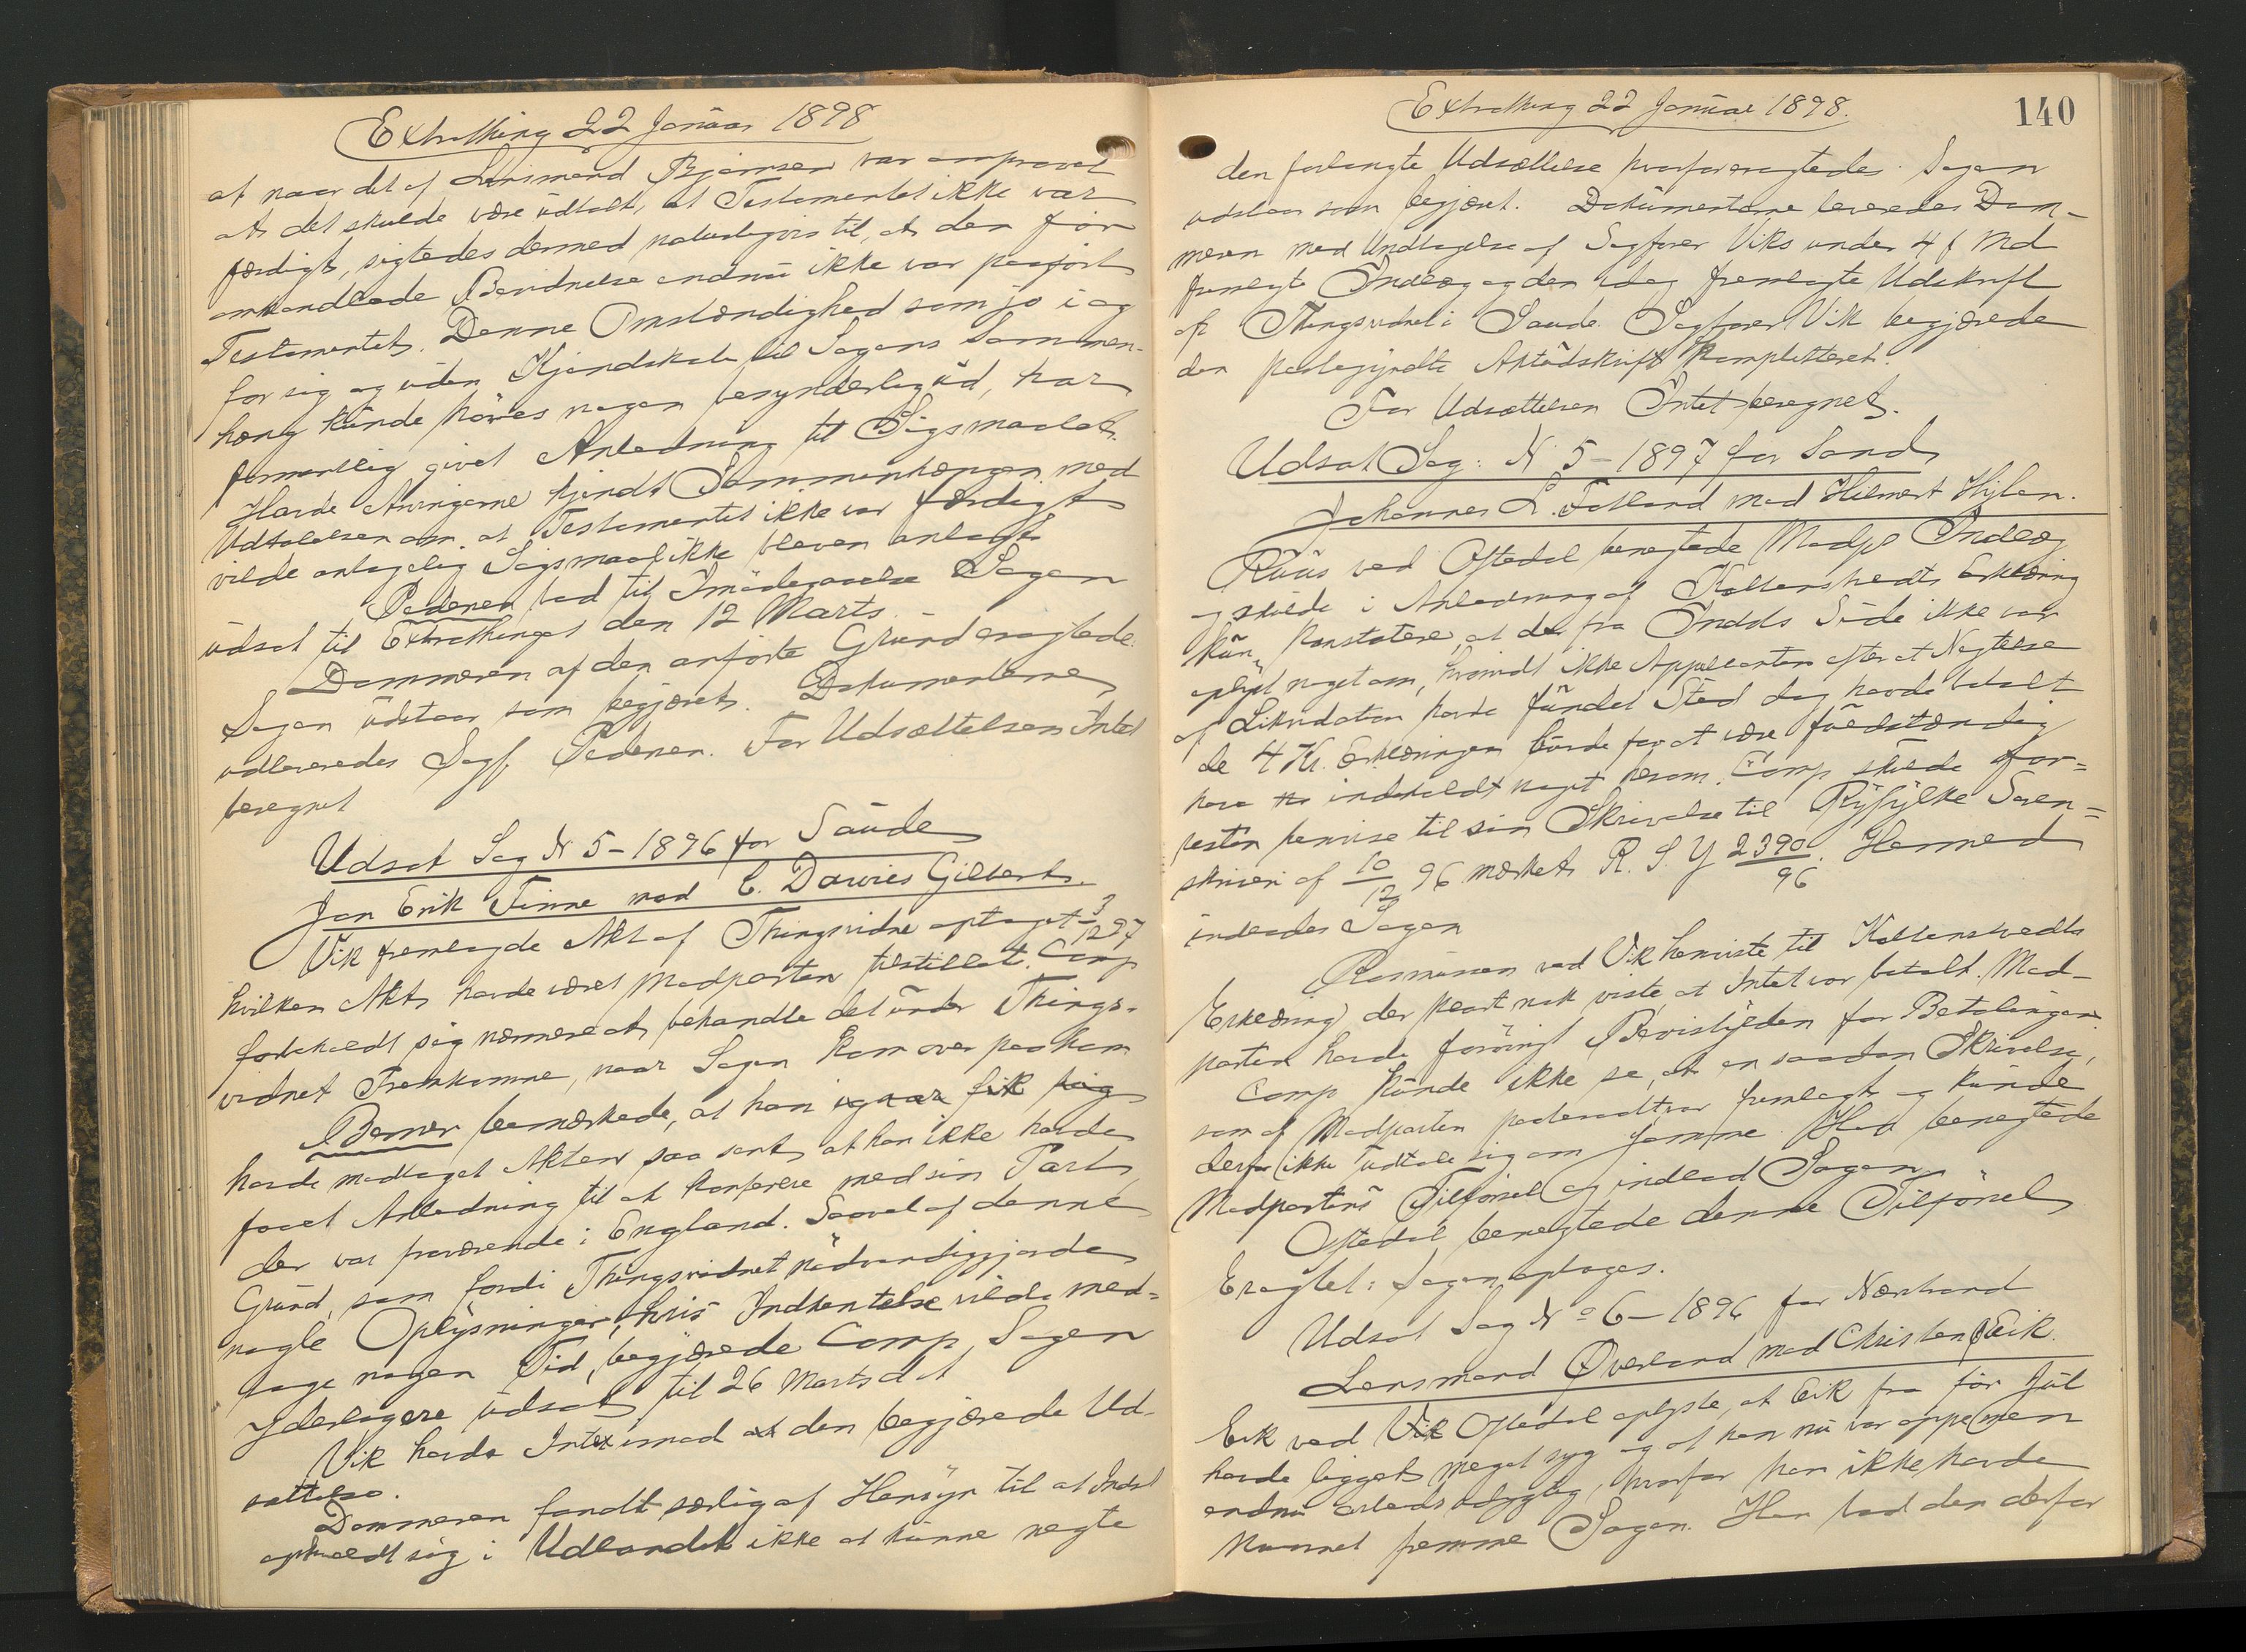 Extrathing 22 Januar 1898
at naar det af Lensmand Bjørnsen var anprovet
at det skulde være udtalt, at Testamentet ikke var
færdigt, sigtedes dermed naturligvis til, at den før
omhandlede Bevidnelse endnu ikke var paaført
Testamentet. Denne Omstændighed som jo i og
for sig og uden Kjendskab til Sagens Sammen-
hæng kunde høres nogen besynderlig ud, har
formentlig givet Anledning til Sigsmaalet.
Havde Arvingerne kjendt Sammenhængen med
Udtalelsen om, at Testamentet ikke var færdigt
vilde antagelig Sagsmaal ikke bleven anlagt
Pedersen bad til Imødegaaelse Sagen
udsat til Extrathinget den 12 Marts.
Dommeren af den anførte Grund eragtede:
Sagen udstaar som begjæret. Dokumenterne
udleveredes Sagf. Pedersen. For Udsættelsen Intet
beregnet
Udsat Sag N 5 - 1896 for Saude
Jan Erik Finne mod C. Davies Gilbert.
Vik fremlagde Akt af Thingsvidne optaget 3/12 97
hvilken Akt havde været Modparten tilstillet. Comp
forbeholdt sig nærmere at behandle det under Things-
vidnet Fremkomne, naar Sagen kom over paa ham
Berner bemærkede, at han igaar fik
havde modtaget Akten saa sent, at han ikke havde
faaet Anledning til at konferere med sin Part,
der var fraværende i England. Saavel af denne
Grund, som fordi Thingsvidnet nødvendiggjorde
nogle Oplysninger, hvis Indhentelse vilde med-
tage nogen Tid, begjærede Comp Sagen
yderligere udsat til 26 Marts d A
Vik havde Intet imod at den begjærede Ud-
sættelse.
Dommeren fandt særlig af Hensyn til at Indst
opholdt sig i Udlandet ikke at kunne negte
Extrathing 22 Januar 1898.
140
den forlangte Udsættelse hvorfor eragtedes: Sagen
udstaar som begjæret. Dokumenterne leveredes Dom-
meren med Undtagelse af Sagfører Viks under 4 f Md
fremlagte Indlæg og den idag fremlagte Udskrift
af Thingsvidnet i Saude. Sagfører Vik begjærede
den paabegyndte Aktudskrift kompletteret.
For Udsættelsen Intet beregnet.
Udsat Sag: N 5 - 1897 for Sand
Johannes L. Fatland mod Hilmert Hylen.
Ruus ved Oftedal benegtede Modps Indlæg
og skulde i Anledning af Kaltenstvedts Erklæring
kun konstatere, at der fra Indsts Side ikke var
oplyst noget om, hvorvidt ikke Appellanten efter at Negtelse
af Likvidation havde fundet Sted dog havde betalt
de 4 Kr. Erklæringen burde for at være fuldstændig
have indeholdt noget herom. Comp skulde for-
resten henvise til sin Skrivelse til Ryfylke Soren-
skriveri af 10/12 96 mærket R. S. Y 2390/96. Hermed
indlodes Sagen
Rasmussen ved Vik henviste til Kaltenstvedts
Erklæring, der klart nok viste, at Intet var betalt. Mod-
parten havde forøvrigt Bevisbyrden for Betalingen.
Comp kunde ikke se, at en saadan Skrivelse,
som af Modparten paaberaabt var fremlagt og kunde
derfor ikke udtale sig om samme. Han benegtede
Modpartens Tilførsel og indlod Sagen
Oftedal benegtede denne Tilførsel
Eragtet: Sagen optages.
Udsat Sag No 6 - 1896 for Nærstrand
Lensmand Øverland mod Christen Eik.
Eik ved Vik Oftedal oplyste, at Eik fra før Jul
havde ligget meget syg og at han nu var oppe men
endnu arbeidsudygtig, hvorfor han ikke havde
kunnet fremme Sagen. Han bad den derfor